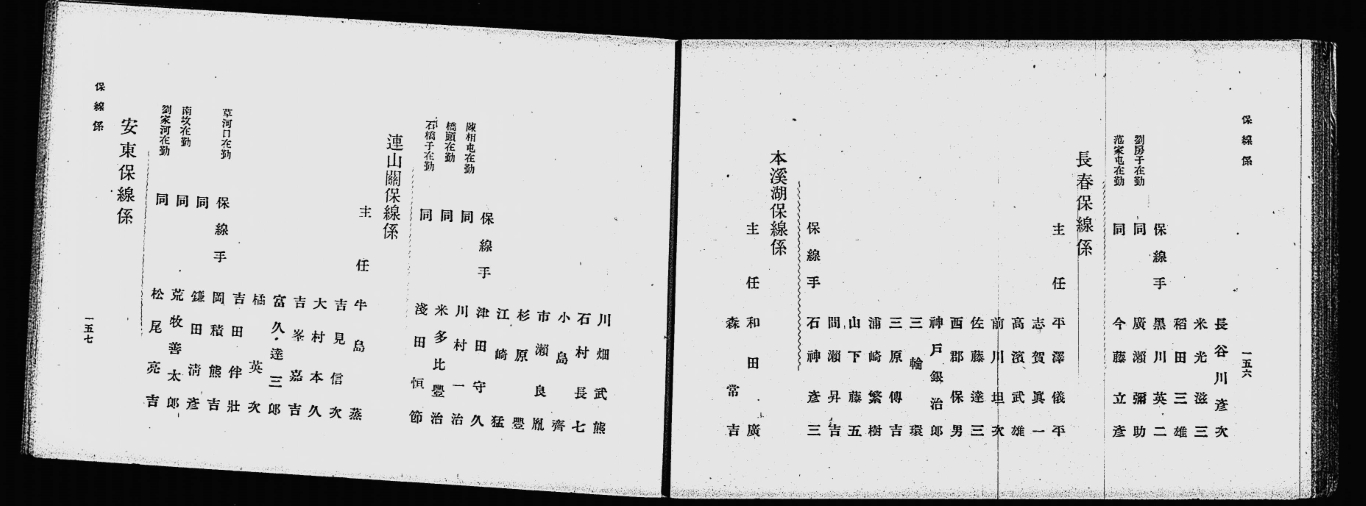 保線係
一五六
長谷川彦次
米光滋三
稻田三雄
保線手 黒川英二
劉房子在勤 同 廣瀬彌助
范家屯在勤 同 今藤立彦
長春保線係
主任 平澤儀平
志賀眞一
高濱武雄
前川坦次
佐藤達三
西郡保男
神戸銀治郎
三輪環
三原傳吉
浦崎繁樹
山下藤五
間瀬昇吉
保線手 石神彦三
本溪湖保線係
主任 和田廣
森常吉
川畑武熊
石村長七
小島齊
市瀬良胤
杉原豐
江崎猛
保線手 津田守久
陳相屯在勤 同 川村一治
橋頭在勤 同 米多比豐治
石橋子在勤 同 淺田恒節
連山關保線係
主任 牛島蒸
吉見信次
大村本久
吉峯嘉吉
富久達三郎
橘英次
吉田伴壯
草河口在勤 保線手 岡積熊吉
同 鎌田淸彦
南坟在勤 同 荒牧善太郎
劉家河在勤 同 松尾亮吉
安東保線係
保線係
一五七